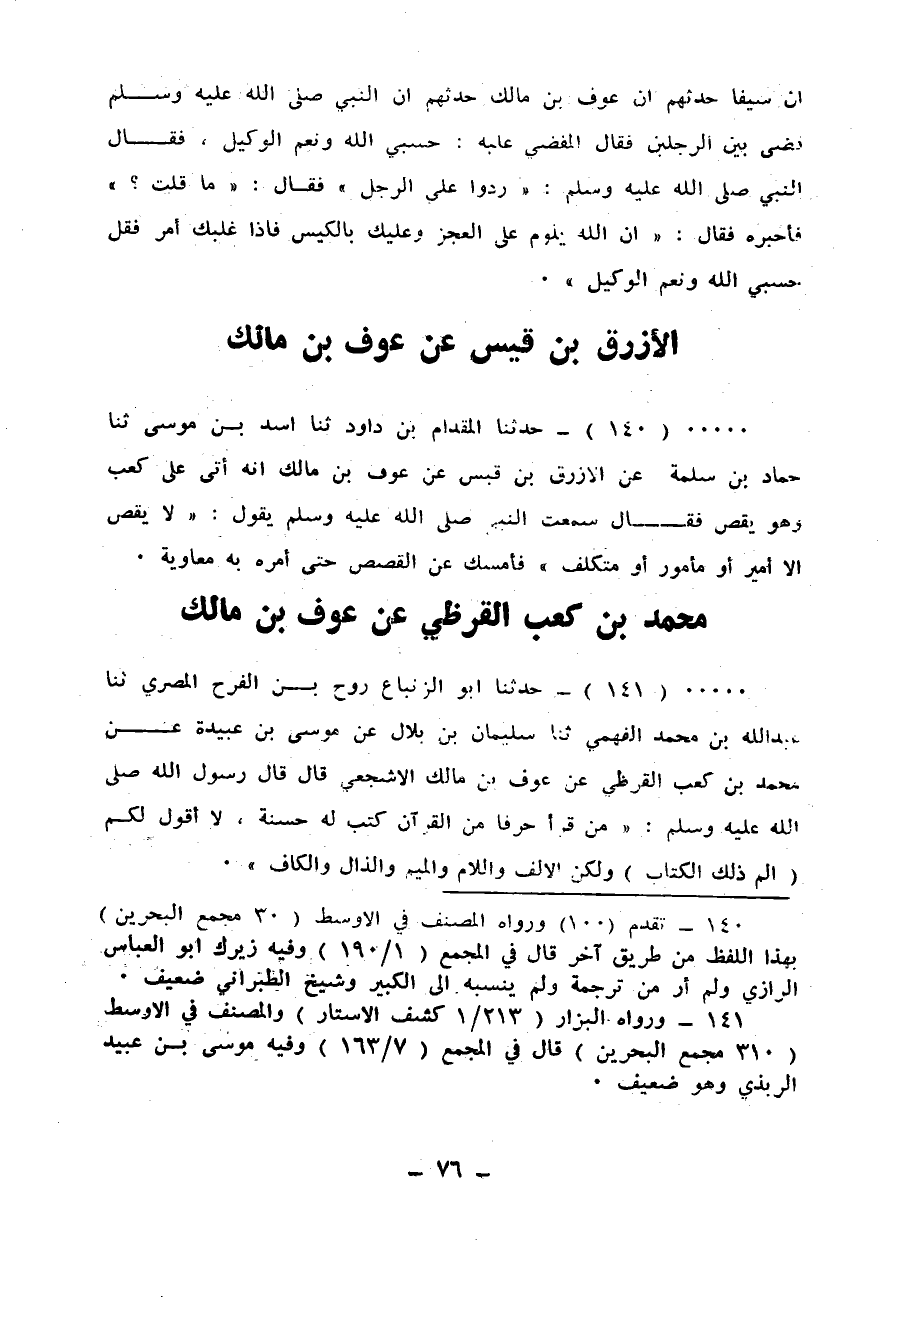 ان سيفا حدثهم ان عوف بن مالك حدثهم ان النبي صلى الله عليه وسلم
قضى بين الرجلين فقال المقضي عليه : حسبي الله ونعم الوكيل ، فقال
النبي صلى الله عليه وسلم : « ردوا علي الرجل » فقال : « ما قلت ؟ »
فأخبره فقال : « ان الله يلوم على العجز وعليك بالكيس فاذا غلبك أمر فقل
حسبي الله ونعم الوكيل » ·
الأزرق بن قيس عن عوف بن مالك
····· ( ١٤٠ ) ـ حدثنا المقدام بن داود ثنا اسد بن موسى ثنا
حماد بن سلمة عن الازرق بن قيس عن عوف بن مالك انه أتى على كعب
وهو يقص فقال سمعت النبي صلى الله عليه وسلم يقول : « لا يقص
الا أمير أو مأمور أو متكلف » فأمسك عن القصص حتى أمره به معاوية ·
محمد بن كعب القرظي عن عوف بن مالك
····· ( ١٤١ ) ـ حدثنا ابو الزنباع روح بن الفرح المصري ثنا
عبدالله بن محمد الفهمي ثنا سليمان بن بلال عن موسى بن عبيدة عن
محمد بن كعب القرظي عن عوف بن مالك الاشجعي قال قال رسول الله صلى
الله عليه وسلم : « من قرأ حرفا من القرآن كتب له حسنة ، لا أقول لكم
( الم ذلك الكتاب ) ولكن الالف واللام والميم والذال والكاف » ·
١٤٠ ـ تقدم (١٠٠) ورواه المصنف في الاوسط ( ٣٠ مجمع البحرين )
بهذا اللفظ من طريق آخر قال في المجمع ( ١/١٩٠ ) وفيه زيرك ابو العباس
الرازي ولم أر من ترجمة ولم ينسبه الى الكبير وشيخ الطبراني ضعيف ·
١٤١ ـ ورواه البزار ( ١/٢١٣ كشف الاستار ) والمصنف في الاوسط
( ٣١٠ مجمع البحرين ) قال في المجمع ( ٧/١٦٣ ) وفيه موسى بن عبيد
الربذي وهو ضعيف ·
ـ ٧٦ ـ